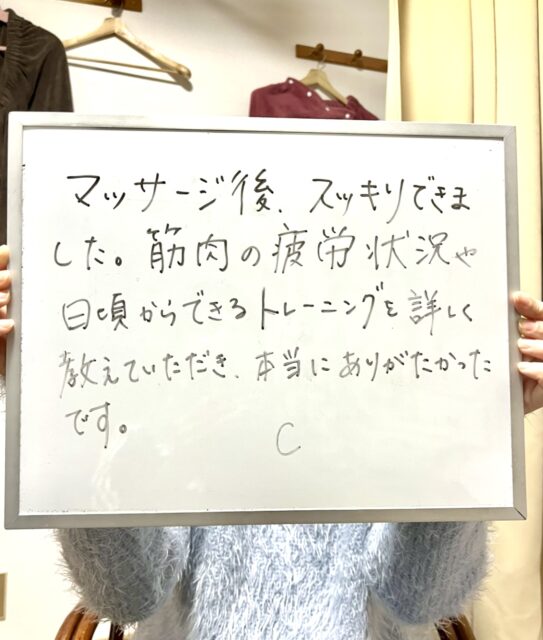 マッサージ後、スッキリできま
した。筋肉の疲労状況や
日頃からできるトレーニングを詳しく
教えていただき、本当にありがたかった
です。
C